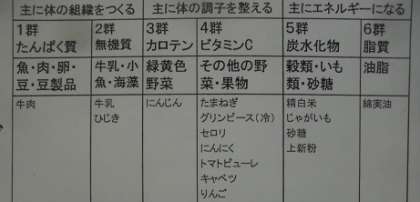 主に体の組織をつくる
主に体の調子を整える
主にエネルギーになる
1群
たんぱく質
2群
無機質
3群
カロテン
4群
ビタミンC
5群
炭水化物
6群
脂質
魚・肉・卵・
豆・豆製品
牛乳・小
魚・海藻
緑黄色
野菜
その他の野
菜・果物
穀類・いも
類・砂糖
油脂
牛肉
牛乳
ひじき
にんじん
たまねぎ
グリンピース(冷)
セロリ
にんにく
トマトピューレ
キャベツ
りんご
精白米
じゃがいも
砂糖
上新粉
綿実油